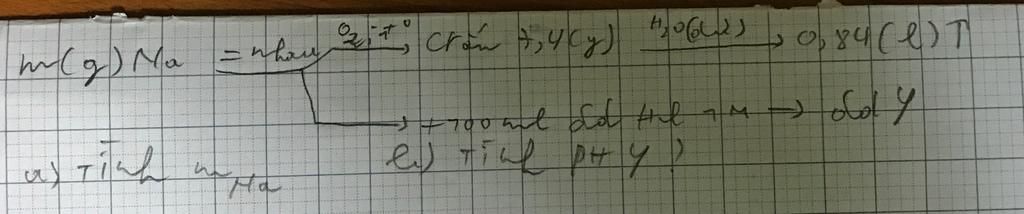 m(g) Na = nhau O₂, t° → Crắn 7,4(g) H₂O(dư) → 0,84(l) T
→ + 700ml dd Hl 1M → dd Y
a) Tính m Na b) Tính pH Y?